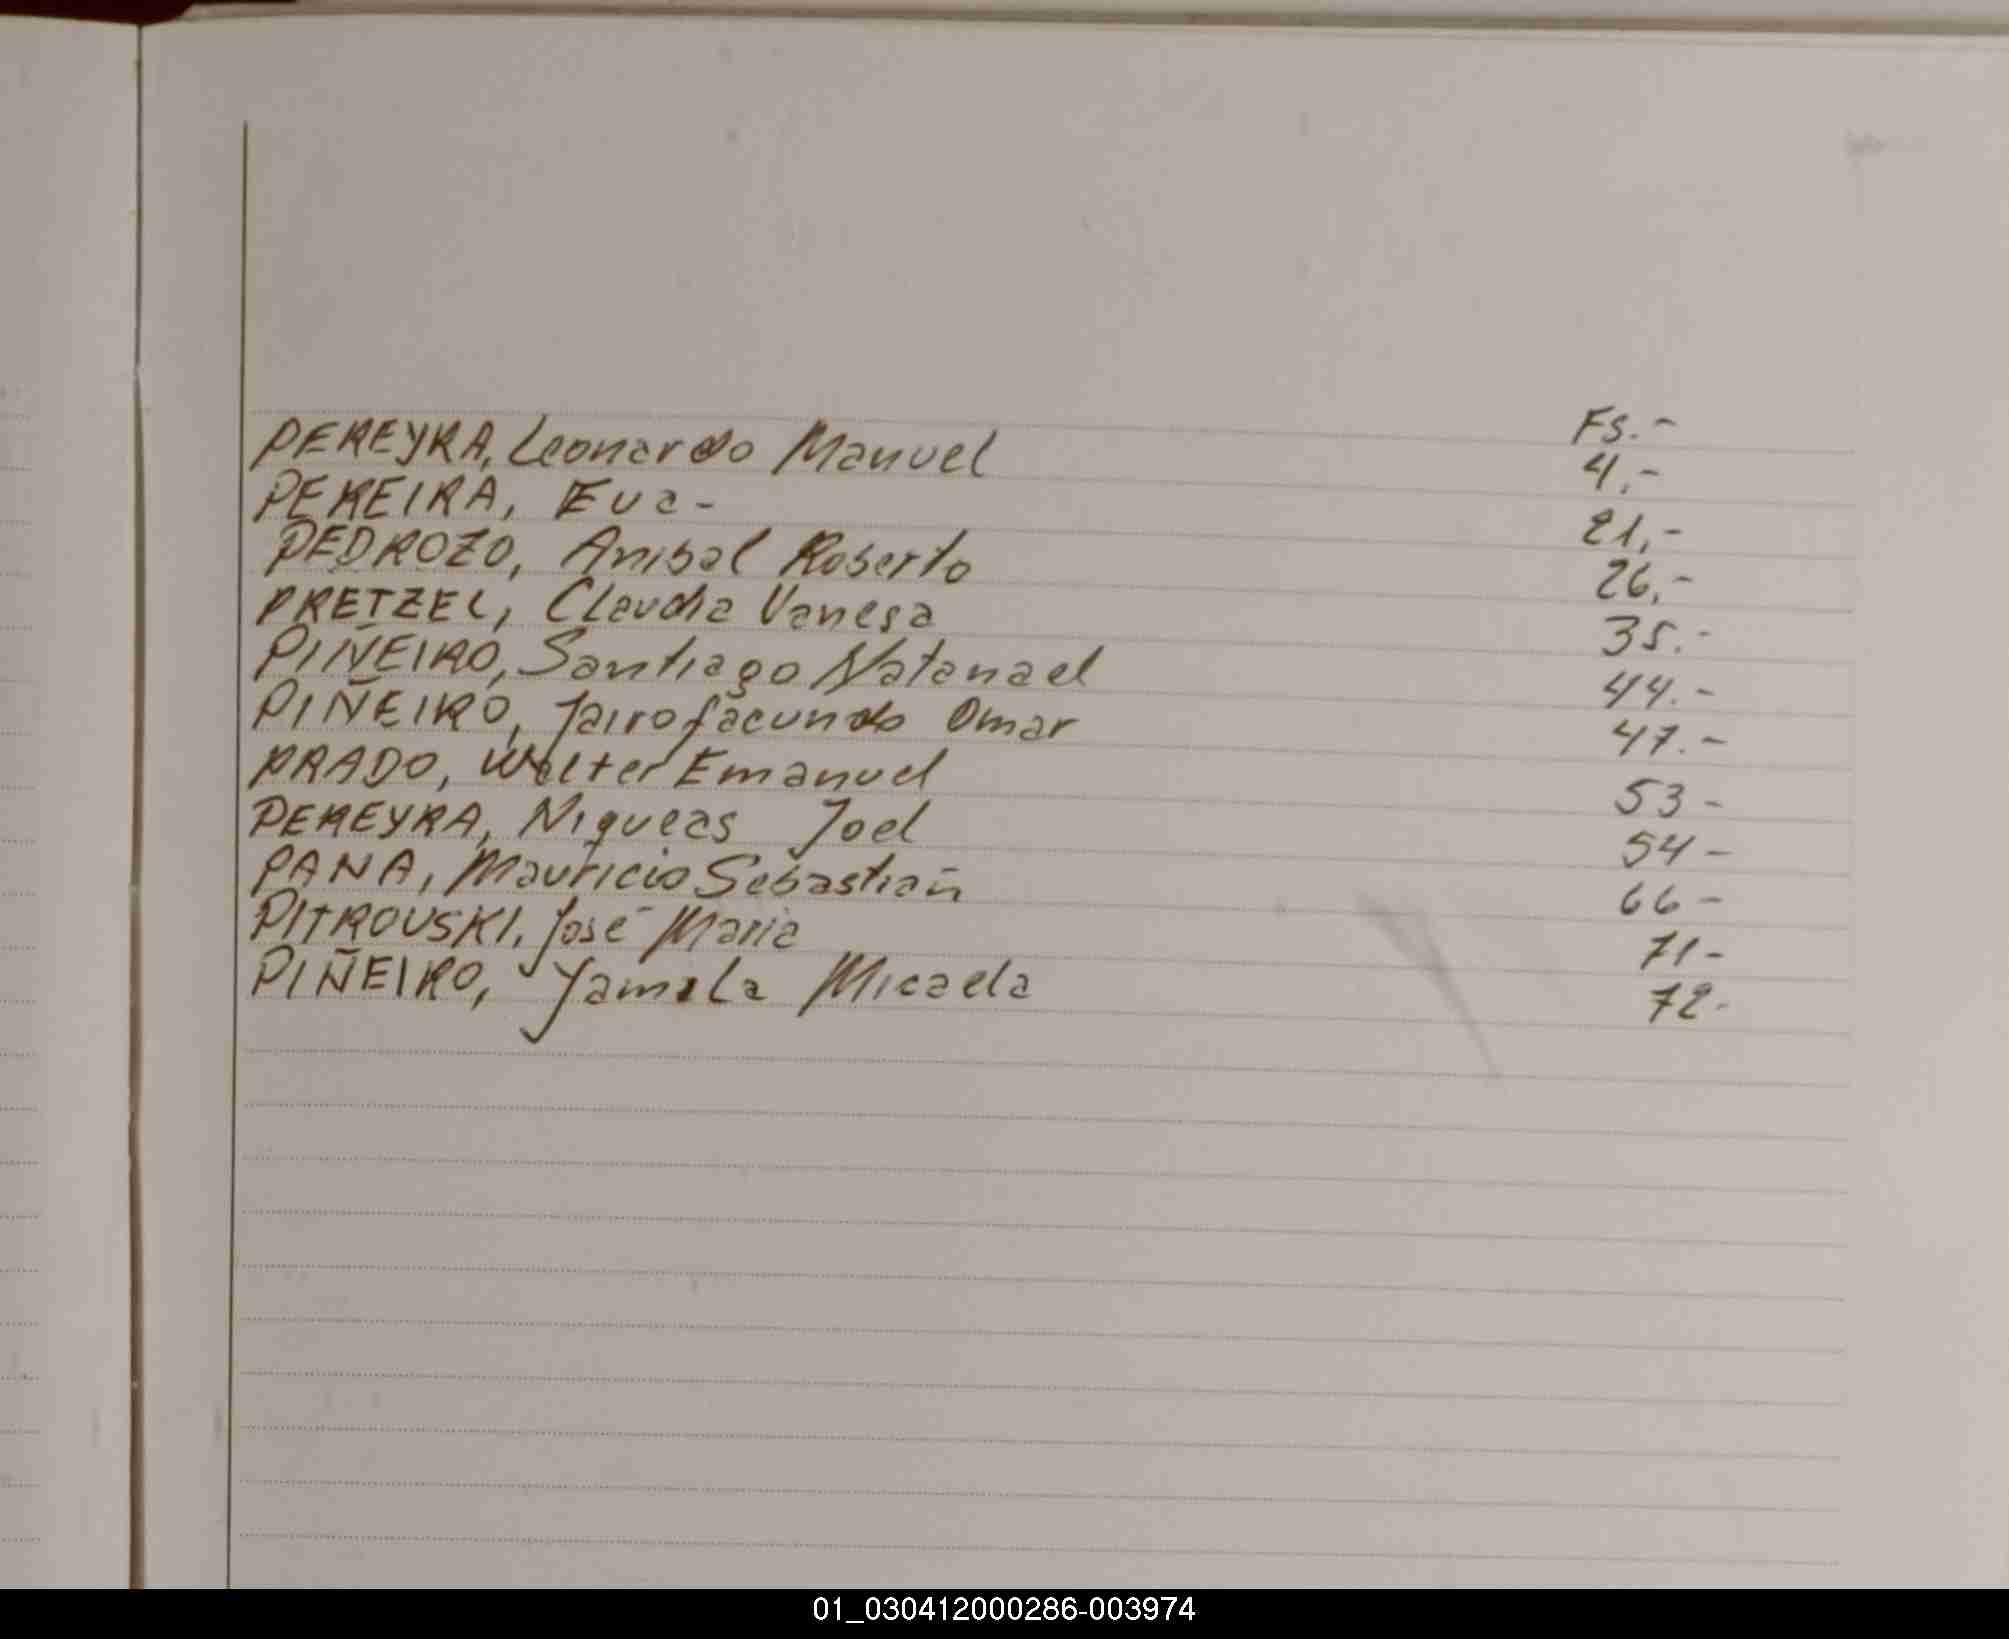 Fs.-
PEREYRA, Leonardo Manuel 4.-
PEREIRA, Eva- 21,-
PEDROZO, Anibal Roberto 26,-
PRETZEL, Claudia Vanesa 35.-
PIÑEIRO, Santiago Natanael 44.-
PIÑEIRO, Jairo facundo Omar 47.-
PRADO, Walter Emanuel 53-
PEREYRA, Niqueas Joel 54-
PANA, Mauricio Sebastián 66-
PITROUSKI, José Maria 71-
PIÑEIRO, Yamila Micaela 72-
01_030412000286-003974